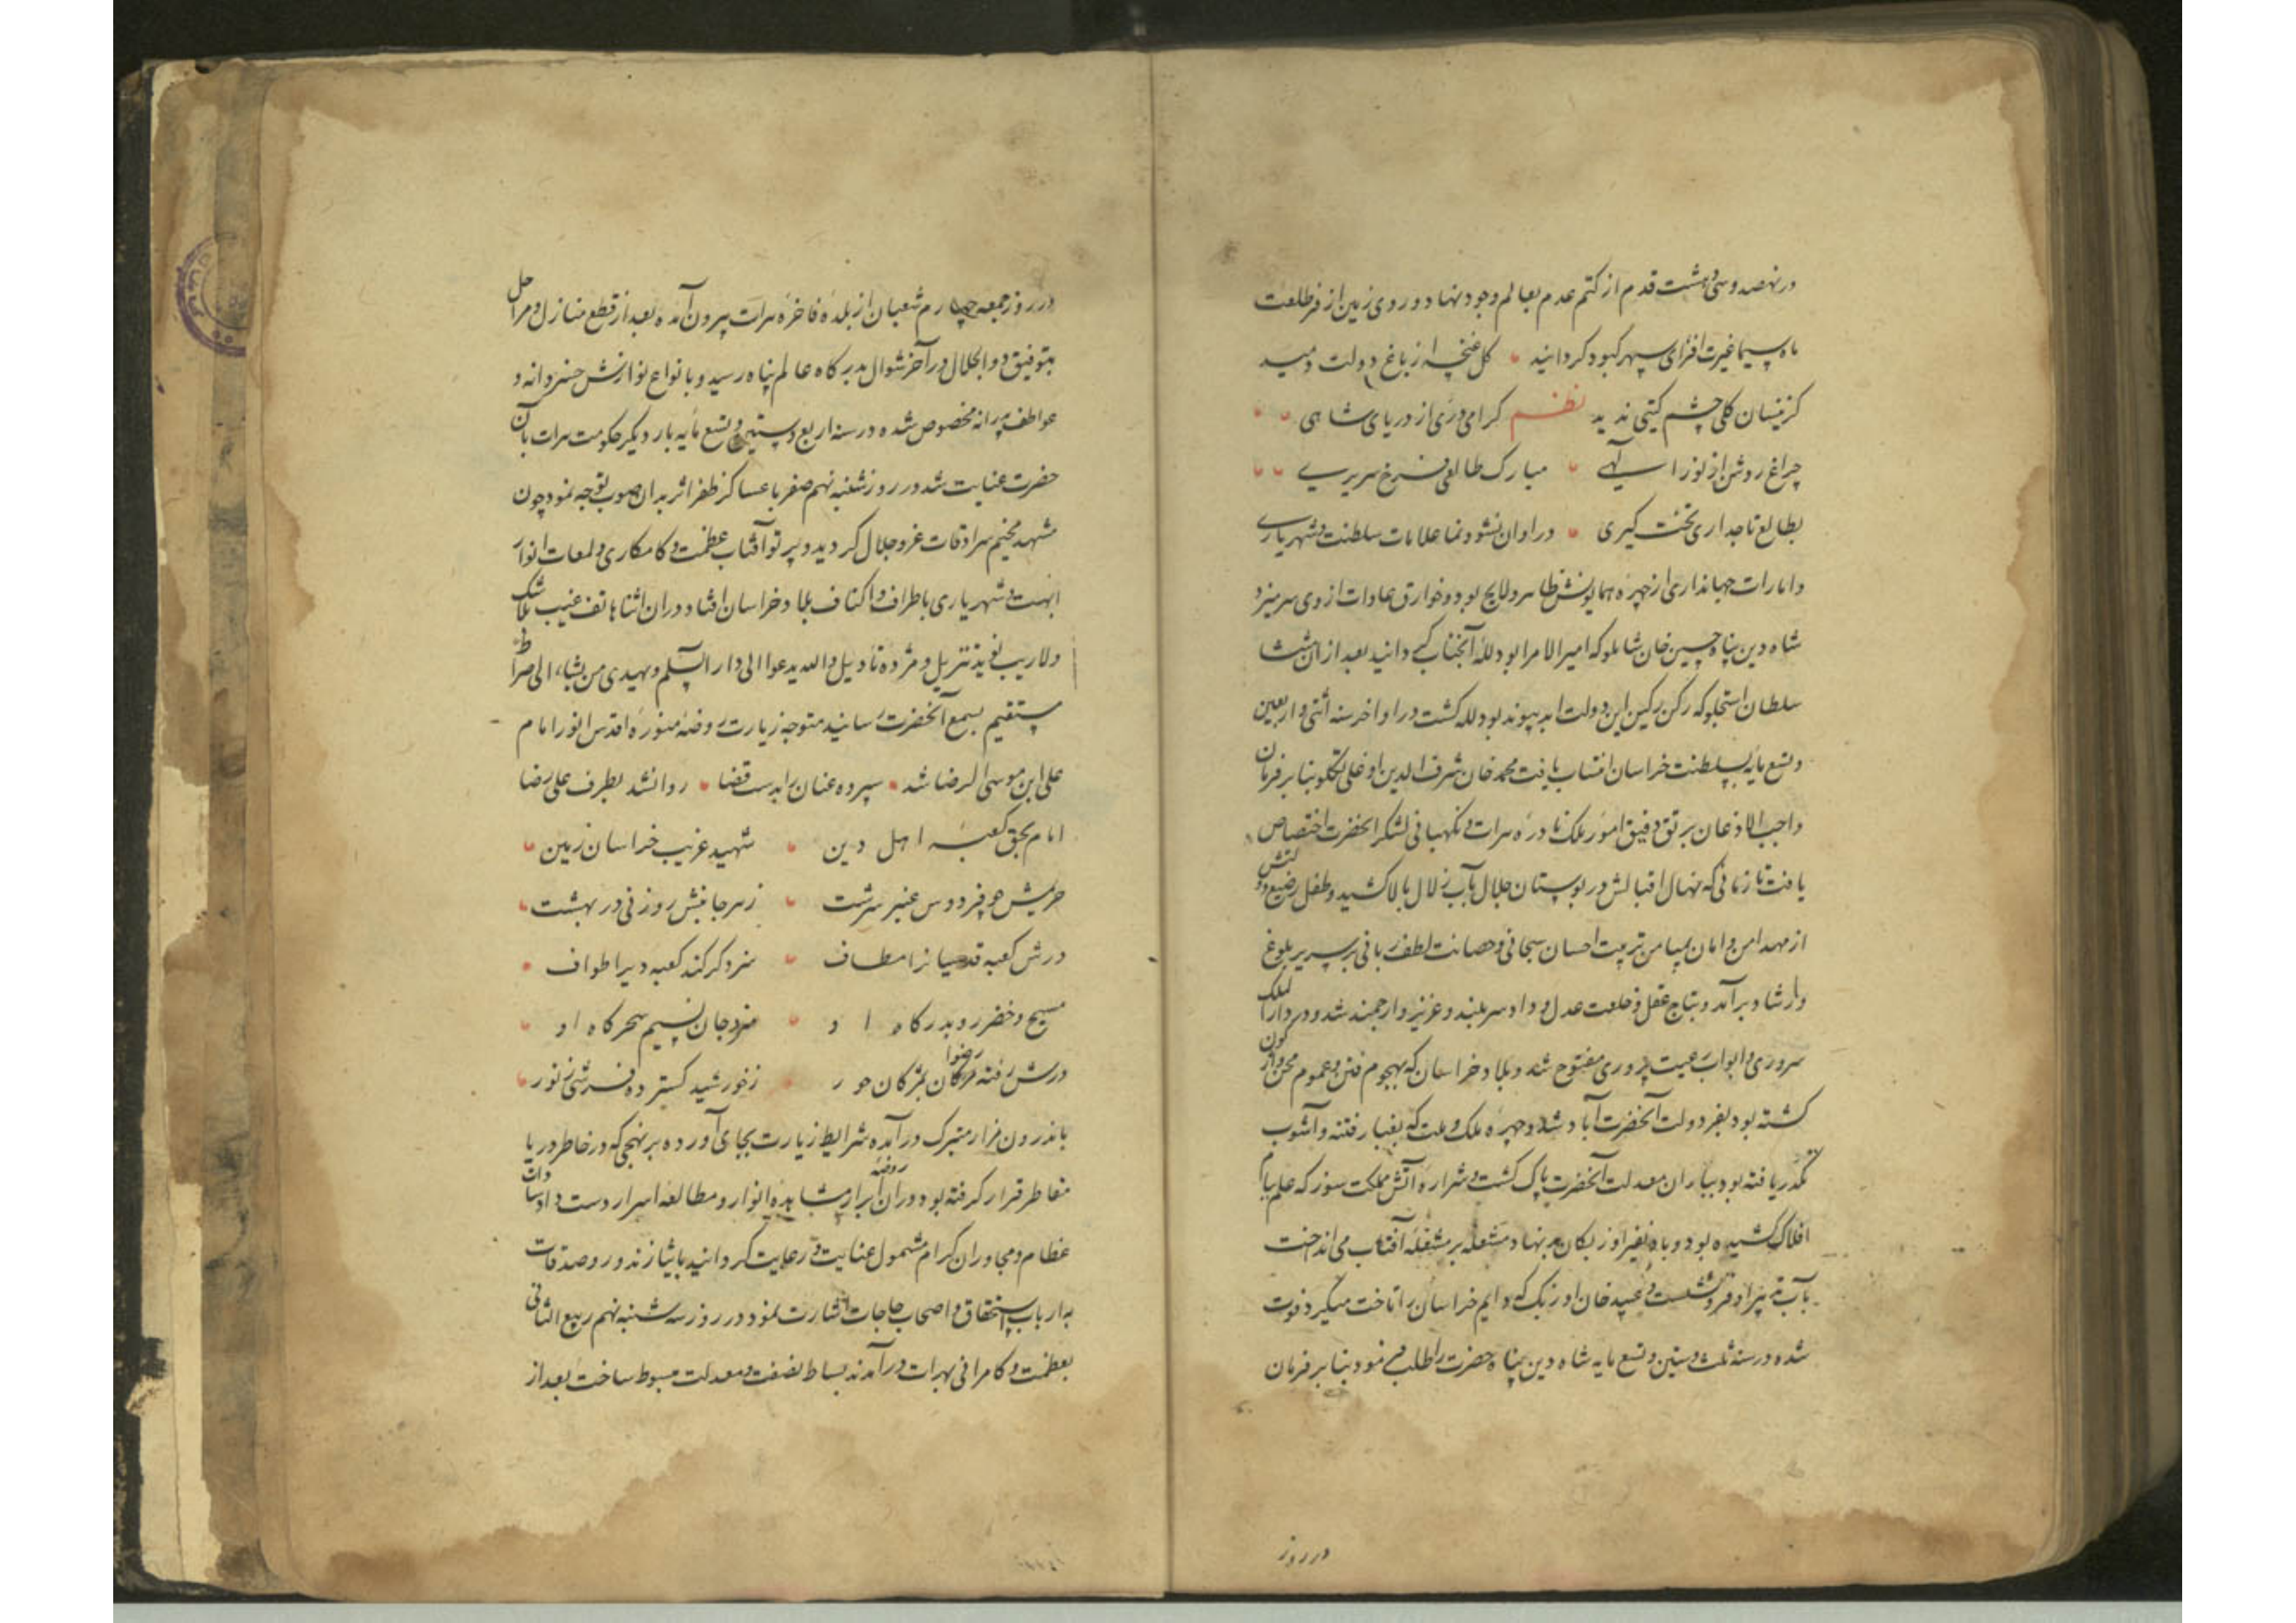 در نهصد و سی و هشت قدم از کتم عدم بعالم وجود نهاد و روی زمین از فر طلعت
ماه سیما غیرت افزای سپهر کبود گردانید کل غنچه از باغ دولت دمید
کزینسان کلی چشم کیتی ندید نظم کرامی دری از دریای شاهی
چراغ روشن از نور الهی مبارک طالعی فرخ سریری
بطالع تاجداری تخت کیری در اوان نشو و نما علامات سلطنت و شهریاری
و امارات جهانداری از چهره همایونش ظاهر و لایح بود و خوارق عادات از وی سر میزد
شاه دین پناه حسین خان شاملو که امیر الامرا بود لله آنجناب کردانید بعد از آن منتشا
سلطان استجلو که رکن رکین این دولت ابد پیوند بود لله کشت در اواخر سنه اثنی و اربعین
و تسع مایه بسلطنت خراسان انتساب یافت محمد خان شرف الدین اوغلی تکلو بنا بر فرمان
واجب الاذعان برتق و فتق امور ملک نادره هرات و نکهبانی لشکر آنحضرت اختصاص
یافت تا زمانی که نهال اقبالش در بوستان جلال بآب زلال بالا کشید و طفل رضیع دولتش
از مهد امن و امان بمیامن تربیت احسان سبحانی و حضانت لطف ربانی بر سریر بلوغ
و ارشاد برآمد و بتاج عقل و خلعت عدل و داد سر بلند و عزیز و ارجمند شد و در دار الملک
سروری و ابواب رعیت پروری مفتوح شد و بلاد خراسان که بهجوم فتن و عموم محن
کشته بود بفر دولت آنحضرت آباد شد و چهره ملک و ملت که بغبار فتنه و آشوب
تکدر یافته بود بباران معدلت آنحضرت پاک کشت و شراره آتش مملکت سوز که علم ببام
افلاک کشیده بود و باد نفیر اوزبکان بد نهاد مشعله بر مشعله آفتاب می انداخت
بآب تیغ او فرو نشست و عبید خان اوزبک که دایم خراسان را تاخت میکرد فوت
شده در سنه ثلث و ستین و تسع مایه شاه دین پناه حضرت را طلب فرمود بنا بر فرمان
در روز
در روز جمعه چهارم شعبان از بلده فاخره هرات بیرون آمده بعد از قطع منازل و مراحل
بتوفیق ذو الجلال در آخر شوال بدرکاه عالم پناه رسید و بانواع نوازش خسروانه و
عواطف پدرانه مخصوص شده در سنه اربع و ستین و تسع مایه بار دیکر حکومت هرات بآن
حضرت عنایت شد در روز شنبه نهم صفر با عساکر ظفر اثر بدان صوب توجه نمود چون
مشهد مخیم سرادقات عز و جلال کردید و پرتو آفتاب عظمت و کامکاری و لمعات انوار
ابهت و شهریاری باطراف و اکناف بلاد خراسان افتاد در آن اثنا هاتف غیب بلا شک
ولاریب نوید تنزیل و مژده تاویل والله یدعوا الی دار السلم و یهدی من یشاء الی صراط
مستقیم بسمع آنحضرت رسانید متوجه زیارت روضه منوره اقدس انور امام
علی ابن موسی الرضا شد سپرده عنان را بدست قضا روانشد بطرف علی رضا
امام بحق کعبه اهل دین شهید غریب خراسان زمین
حریمش چو فردوس عنبر سرشت ز هر جانبش روزنی در بهشت
درش کعبه قدسیانرا مطاف سزد کر کند کعبه دیرا طواف
مسیح و خضر رو بدرکاه او مزد جان نسیم سحرکاه او
درش رفته رضوان بمژکان حور ز خورشید کسترده فرشی ز نور
باندرون مزار متبرک درآمده شرایط زیارت بجای آورده بر نهجی که در خاطر دریا
مقاطر قرار کرفته بود در آن روضه ابرار مشاهده انوار و مطالعه اسرار دست داد و سادات
عظام و مجاوران کرام مشمول عنایت و رعایت کردانید بایثار نذور و صدقات
به ارباب استحقاق و اصحاب حاجات اشارت نمود در روز سه شنبه نهم ربیع الثانی
بعظمت و کامرانی بهرات درآمدند بساط نصفت و معدلت مبسوط ساخت بعد از